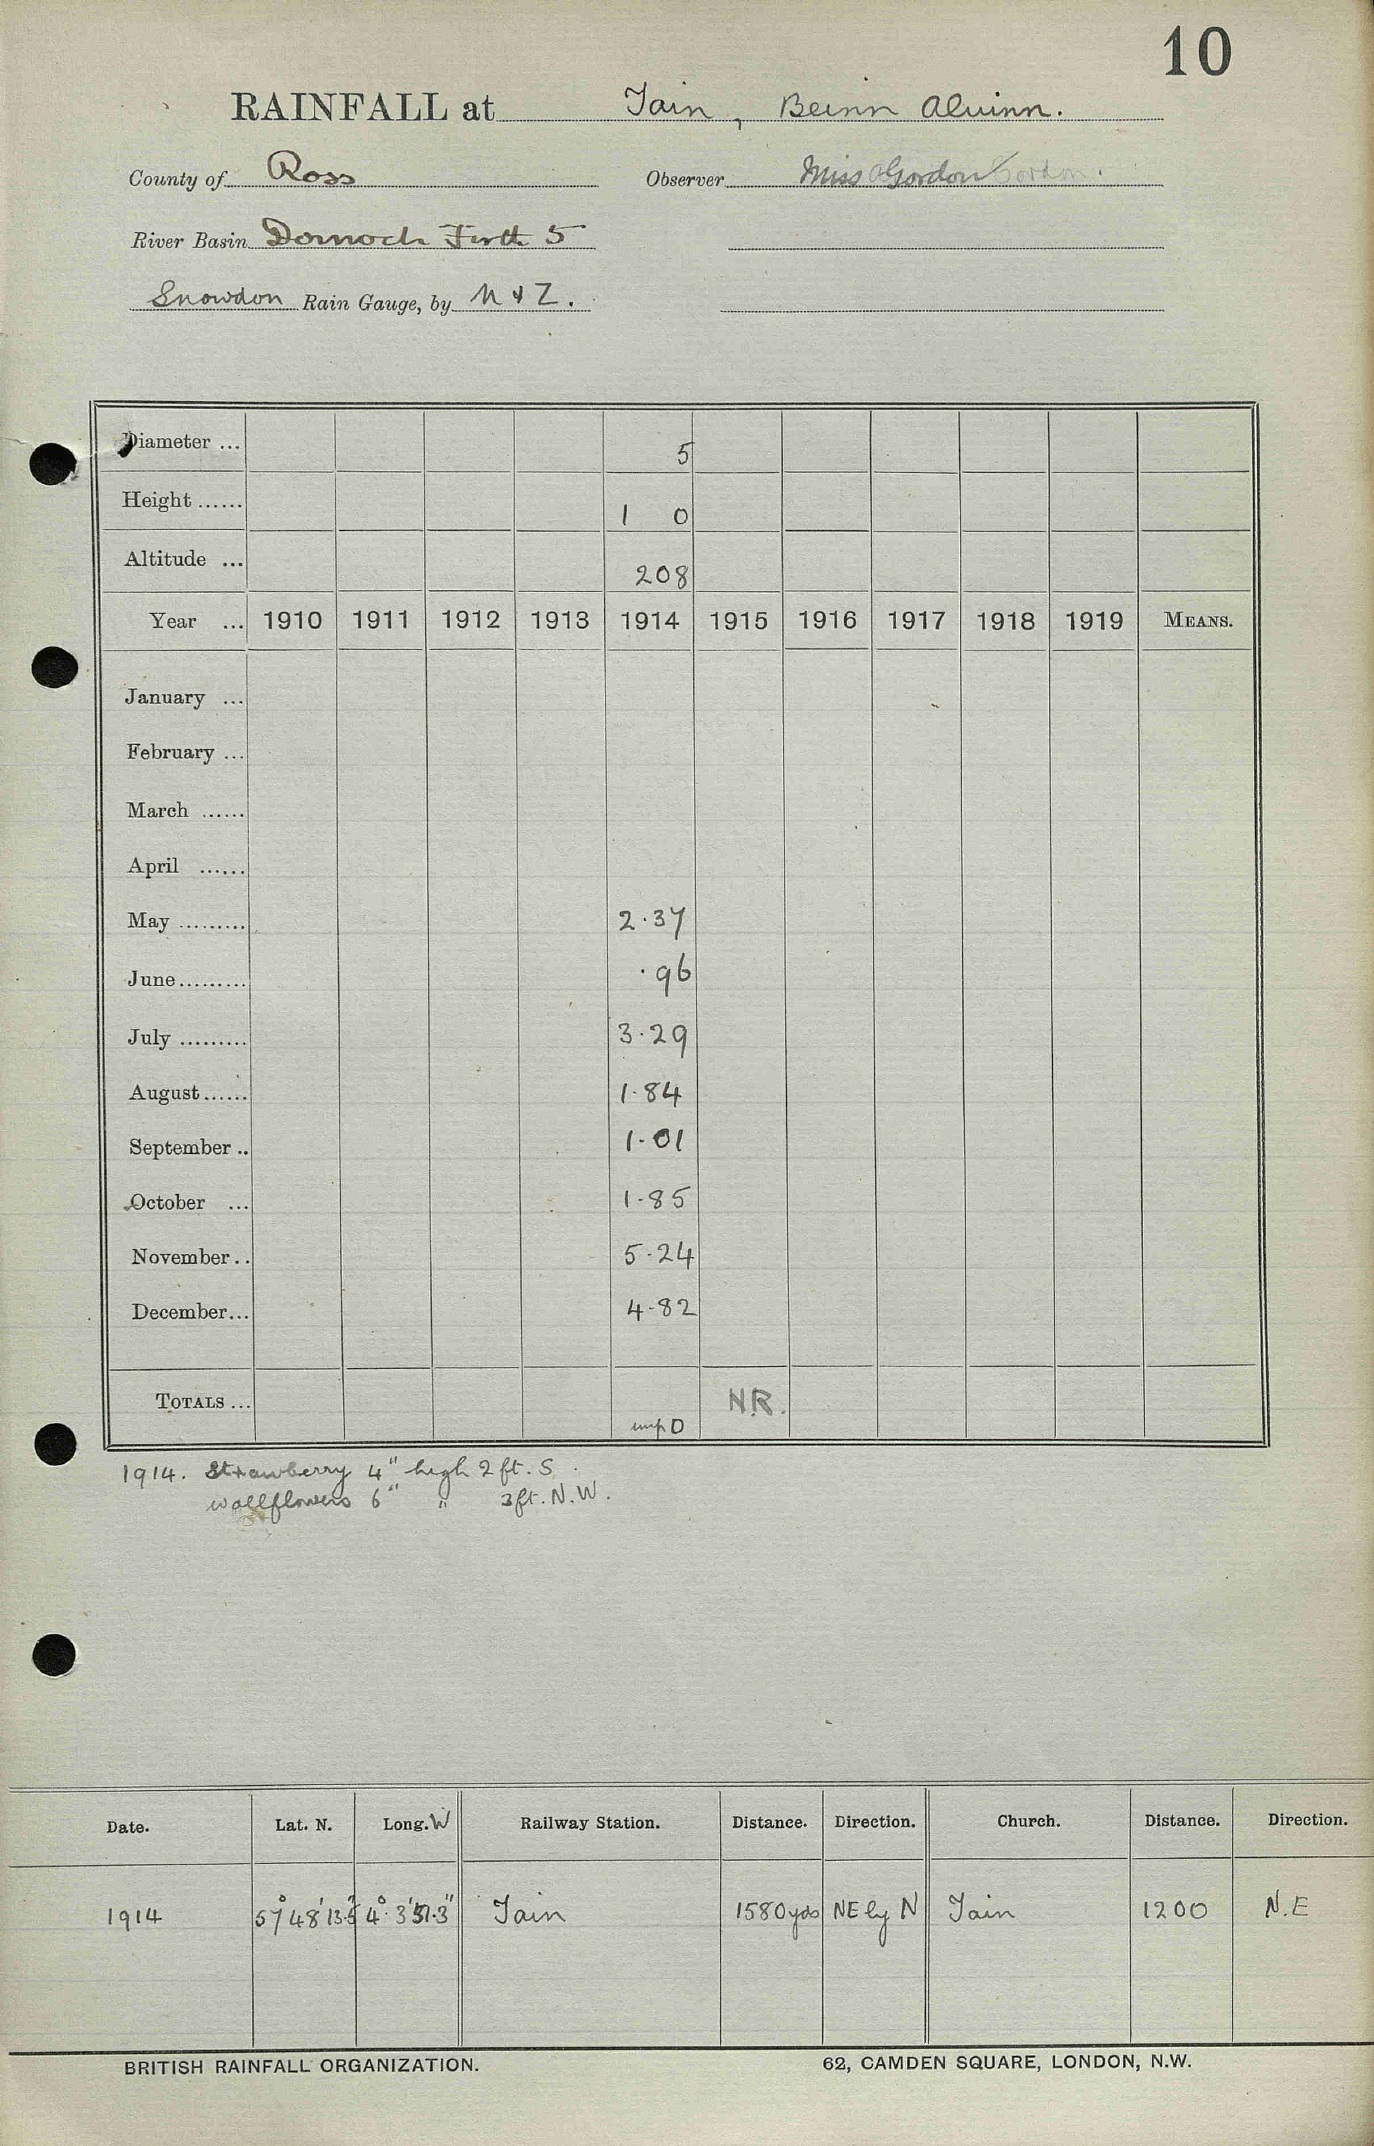 10
RAINFALL at Tain, Beinn Aluinn.
County of Ross Observer Miss Gordon
River Basin Dornoch Firth 5
Snowdon Rain Gauge, by N & Z.
Diameter ... 5
Height ...... 1 0
Altitude ... 208
Year ... 1910 1911 1912 1913 1914 1915 1916 1917 1918 1919 MEANS.
January ...
February ...
March ......
April ......
May ......... 2.37
June......... .96
July ......... 3.29
August...... 1.84
September .. 1.01
October ... 1.85
November.. 5.24
December... 4.82
TOTALS ... N.R.
1914. Strawberry 4" high 2 ft. S.
wallflowers 6" " 3ft. N.W.
Date. Lat. N. Long. W Railway Station. Distance. Direction. Church. Distance. Direction.
1914 57° 48' 13.5" 4° 3' 51.3" Tain 1580 yds NE by N Tain 1200 N.E
BRITISH RAINFALL ORGANIZATION. 62, CAMDEN SQUARE, LONDON, N.W.